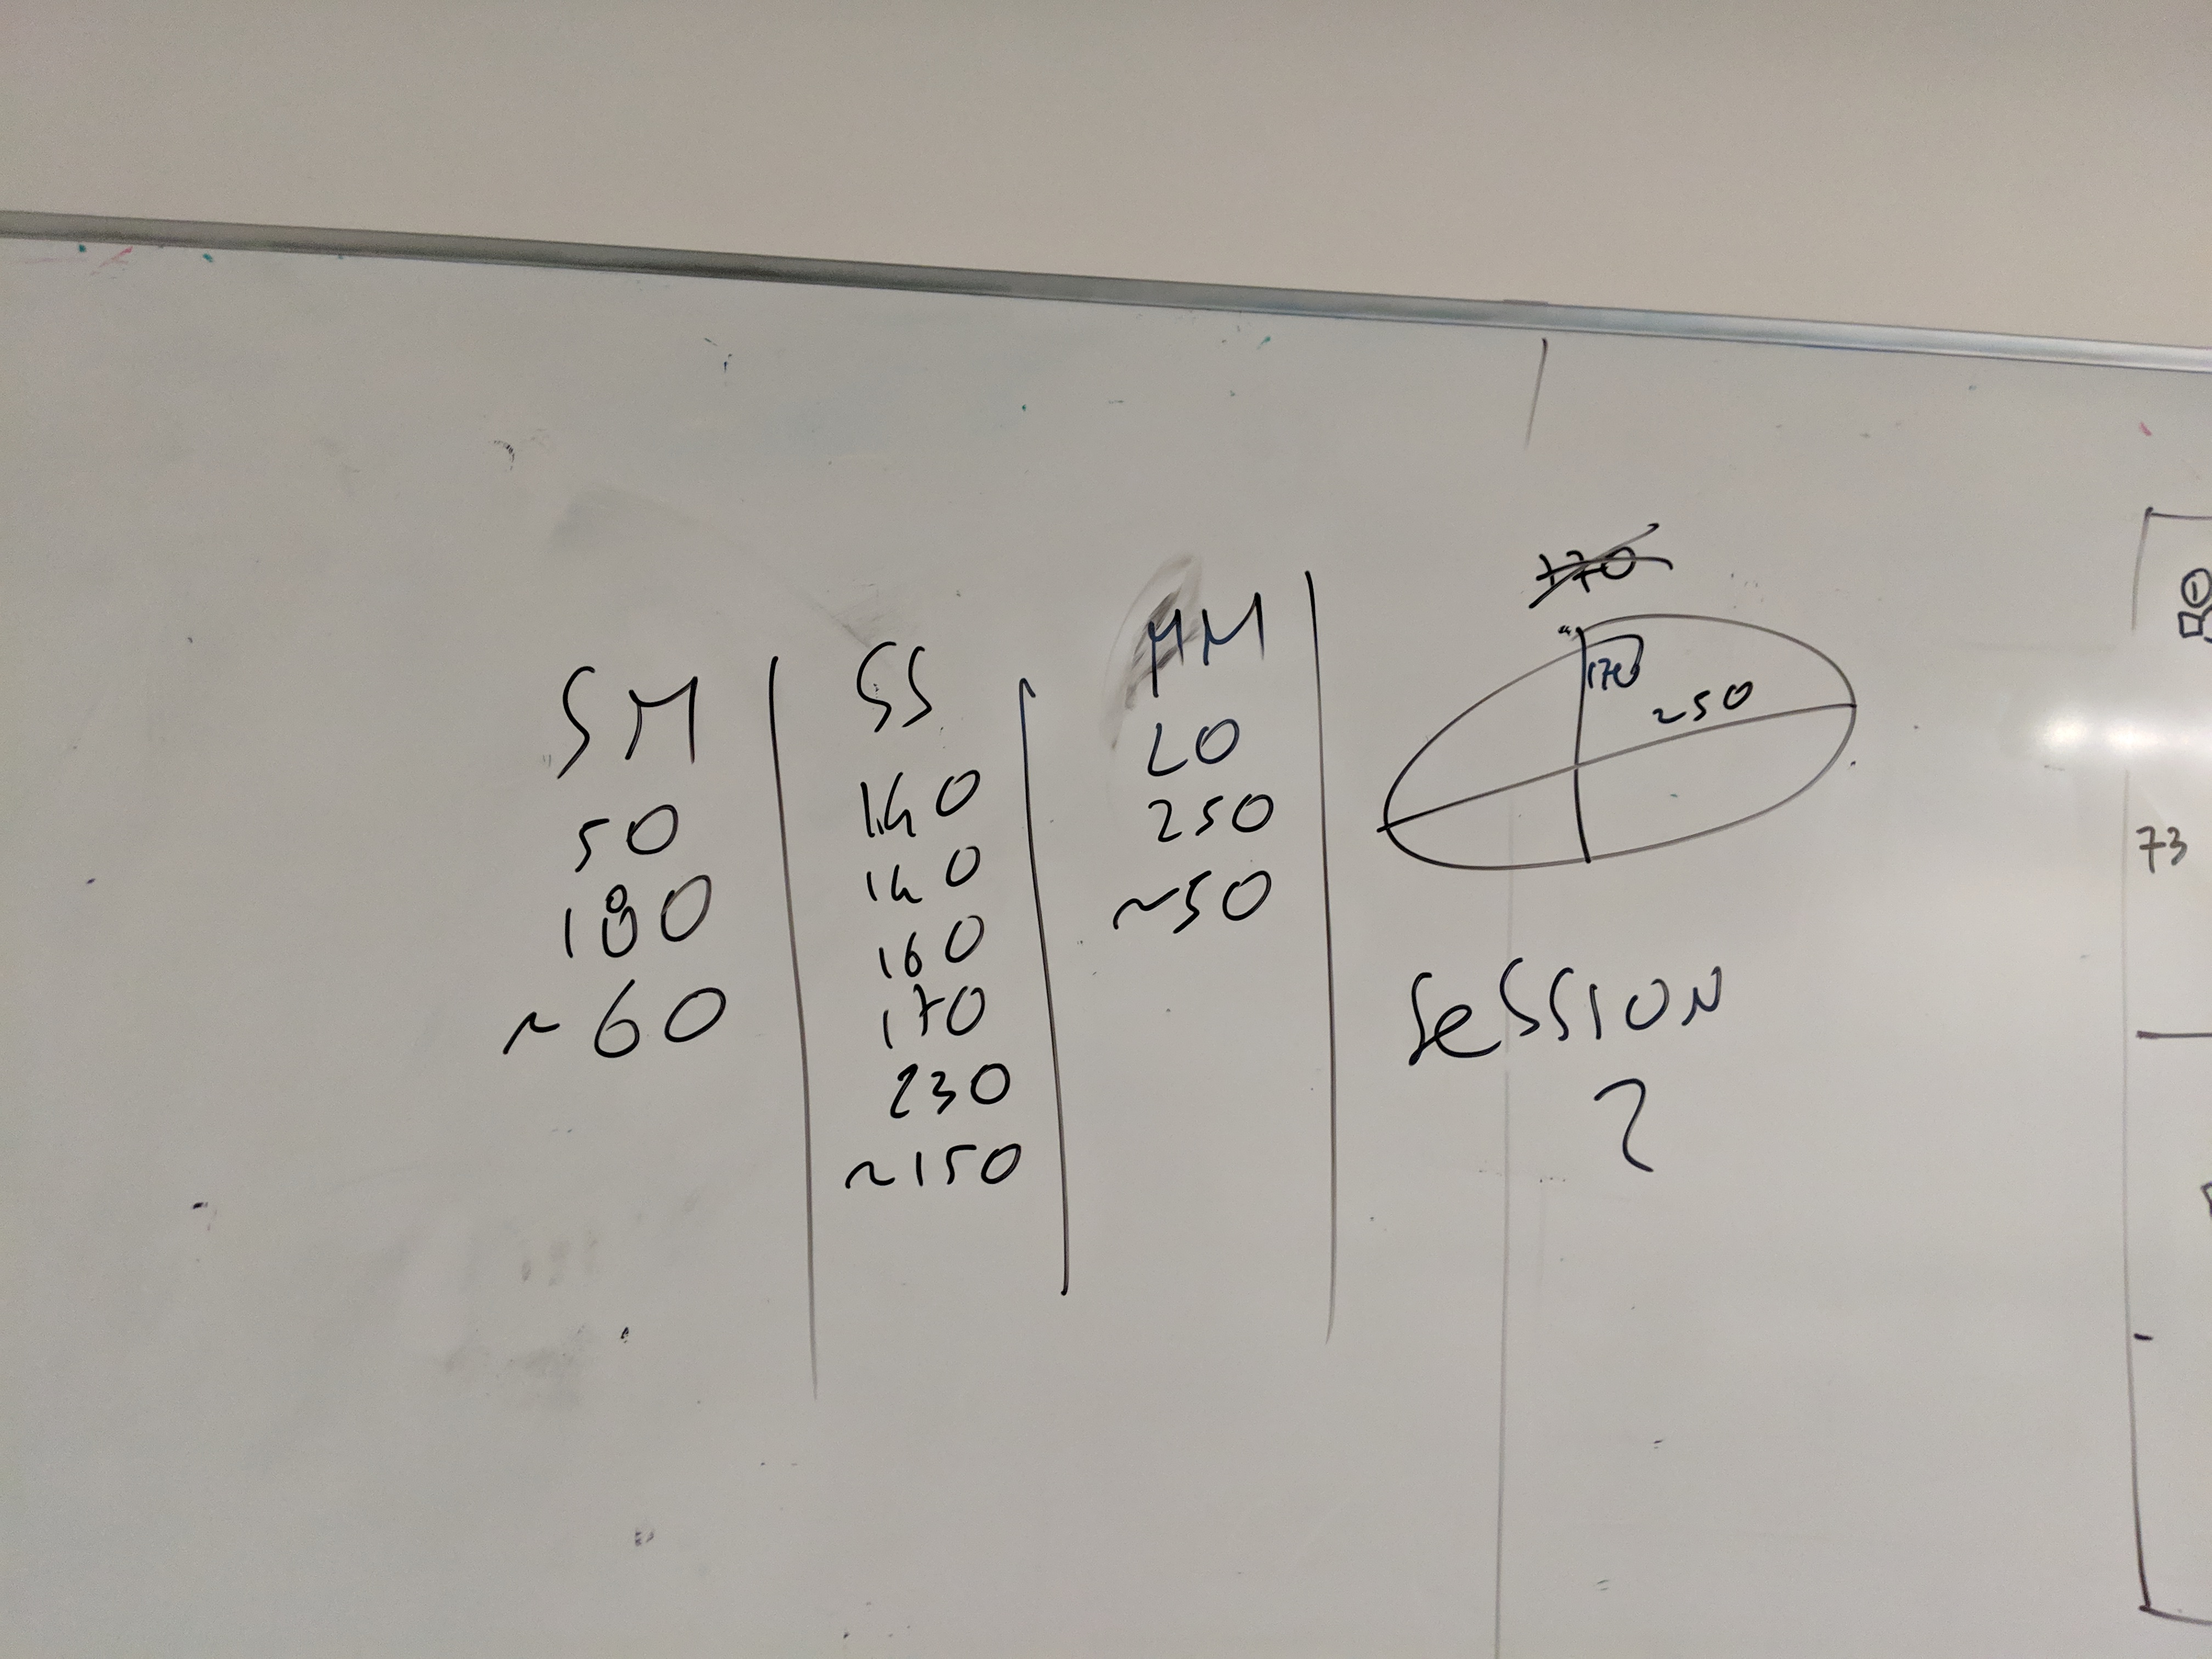 SM
50
180
~60
SS
140
140
160
170
230
~150
MM
20
250
~50
170
170
250
SESSION
?
73